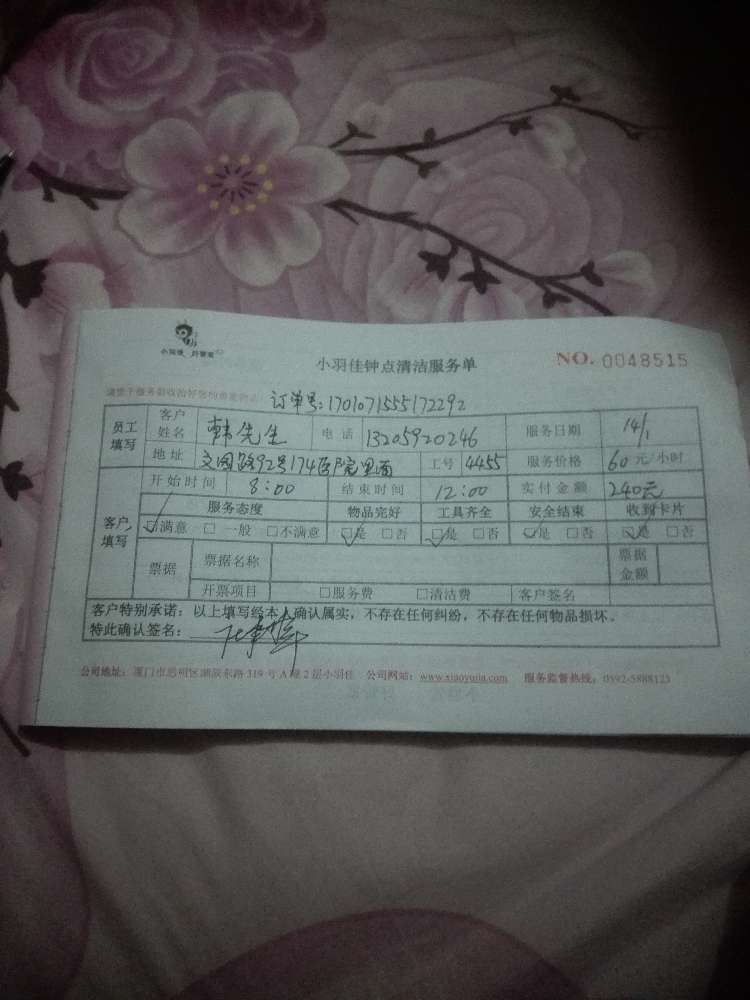 小羽佳 好管家
小羽佳钟点清洁服务单 NO. 0048515
订单号:1701071555172292
员工填写 客户姓名 韩先生 电话 13205920246 服务日期 14/1
地址 文园路92号174医院里面 工号 4455 服务价格 60元/小时
客户填写 开始时间 8:00 结束时间 12:00 实付金额 240元
服务态度 物品完好 工具齐全 安全结束 收到卡片
☑满意 □一般 □不满意 ☑是 □否 ☑是 □否 ☑是 □否 ☑是 □否
票据 票据名称 票据金额
开票项目 □服务费 □清洁费 客户签名
客户特别承诺：以上填写经本人确认属实，不存在任何纠纷，不存在任何物品损坏。
特此确认签名：
公司地址：厦门市思明区湖滨东路319号A幢2层小羽佳 公司网站：www.xiaoyujia.com 服务监督热线：0592-5888123